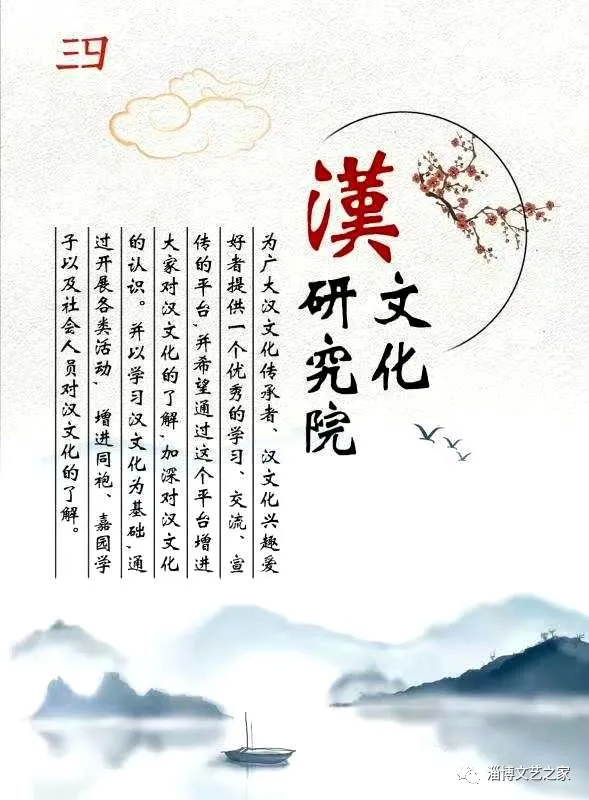 漢
文化
研究院
为广大汉文化传承者、汉文化兴趣爱
好者提供一个优秀的学习、交流、宣
传的平台,并希望通过这个平台增进
大家对汉文化的了解,加深对汉文化
的认识。并以学习汉文化为基础,通
过开展各类活动、增进同袍、嘉园学
子以及社会人员对汉文化的了解。
淄博文艺之家